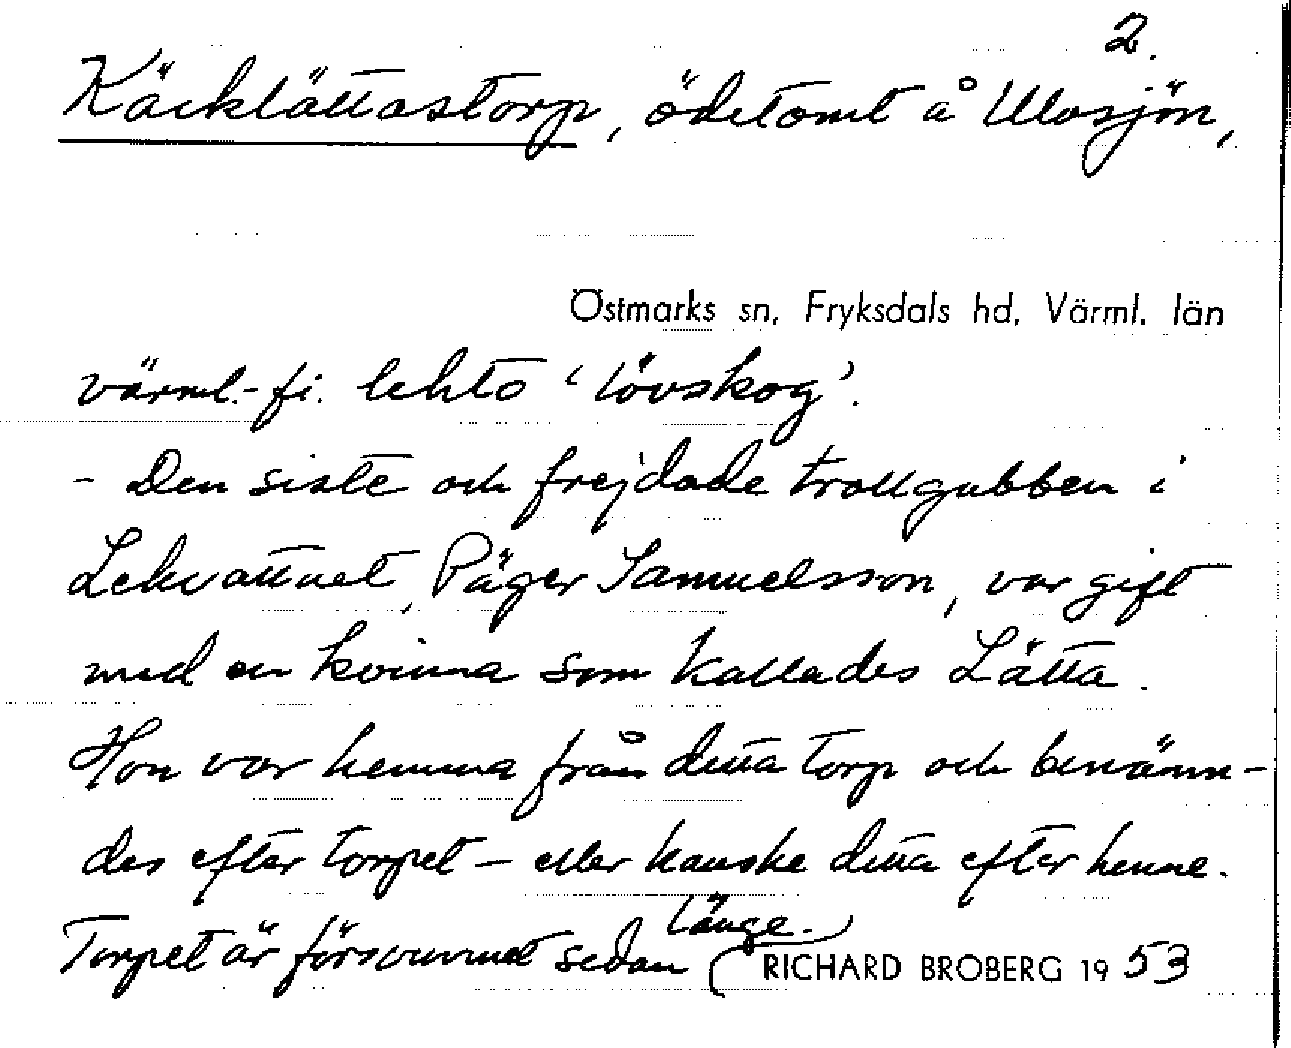 2.
Käcklättastorp, ödetomt å Ulvsjön,
Östmarks sn, Fryksdals hd, Värml. län
värml.-fi. lehto 'lövskog'.
- Den siste och frejdade trollgubben i
Lekvattnet, Päger Samuelsson, var gift
med en kvinna som kallades Lätta.
Hon var hemma från detta torp och benämn-
des efter torpet - eller kanske detta efter henne.
Torpet är försvunnet sedan länge.
RICHARD BROBERG 1953